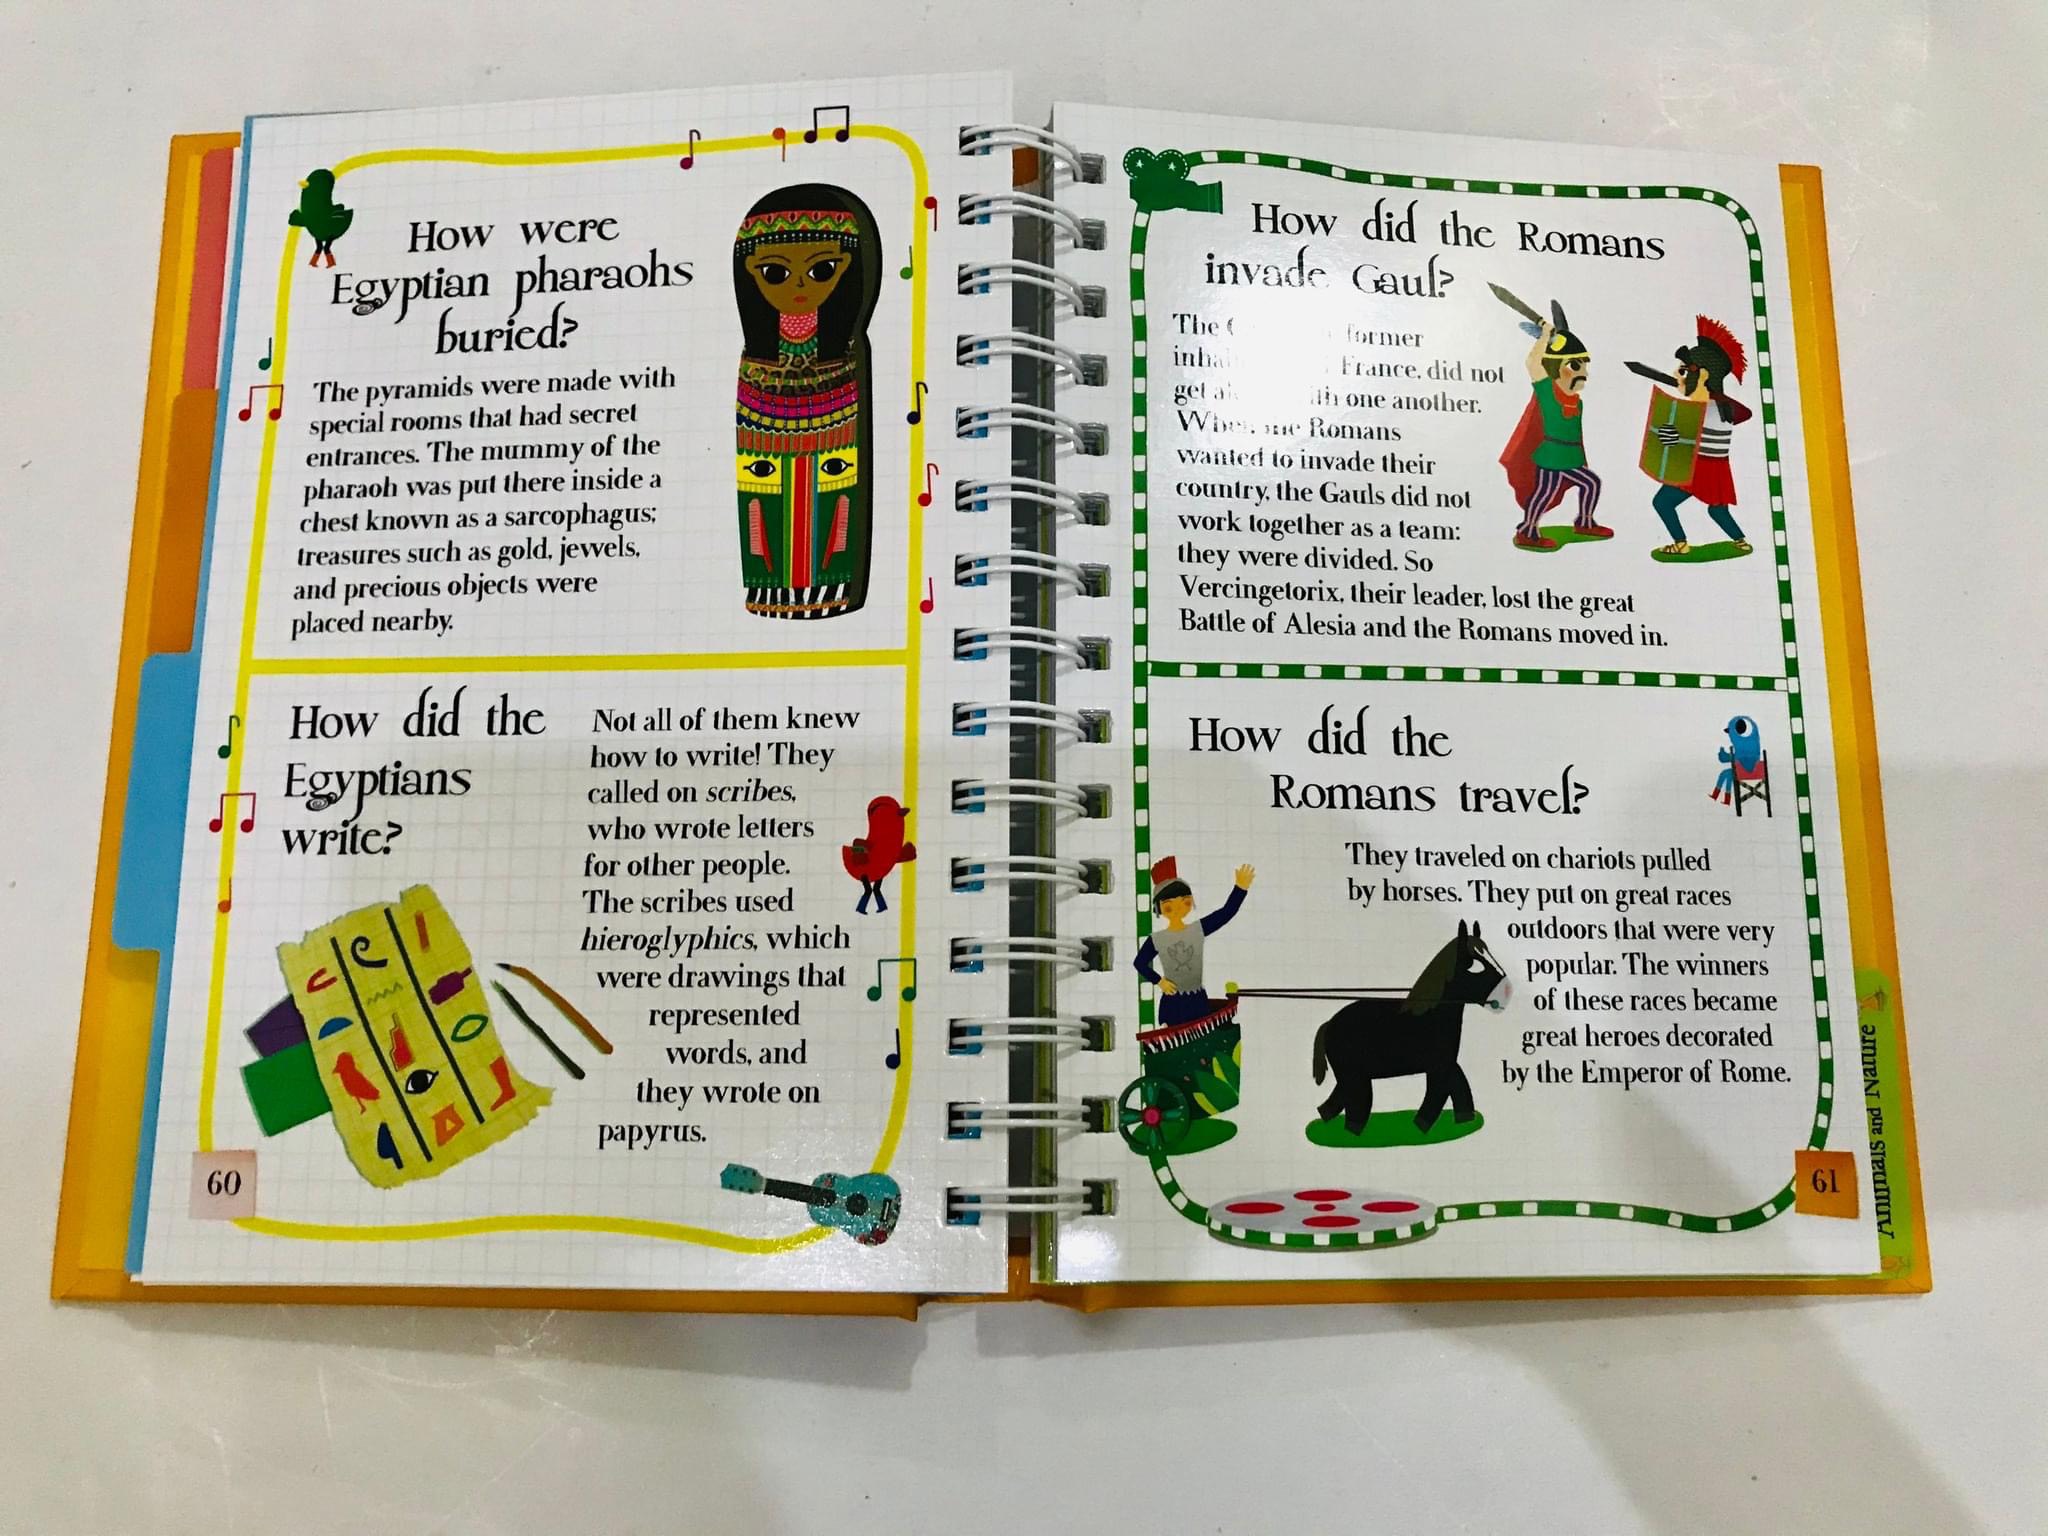 How were
Egyptian pharaohs
buried?
The pyramids were made with
special rooms that had secret
entrances. The mummy of the
pharaoh was put there inside a
chest known as a sarcophagus;
treasures such as gold, jewels,
and precious objects were
placed nearby.
How did the
Egyptians
write?
Not all of them knew
how to write! They
called on scribes,
who wrote letters
for other people.
The scribes used
hieroglyphics, which
were drawings that
represented
words, and
they wrote on
papyrus.
60
How did the Romans
invade Gaul?
The former
France, did not
get one another.
When the Romans
wanted to invade their
country, the Gauls did not
work together as a team:
they were divided. So
Vercingetorix, their leader, lost the great
Battle of Alesia and the Romans moved in.
How did the
Romans travel?
They traveled on chariots pulled
by horses. They put on great races
outdoors that were very
popular. The winners
of these races became
great heroes decorated
by the Emperor of Rome.
61
Animals and Nature